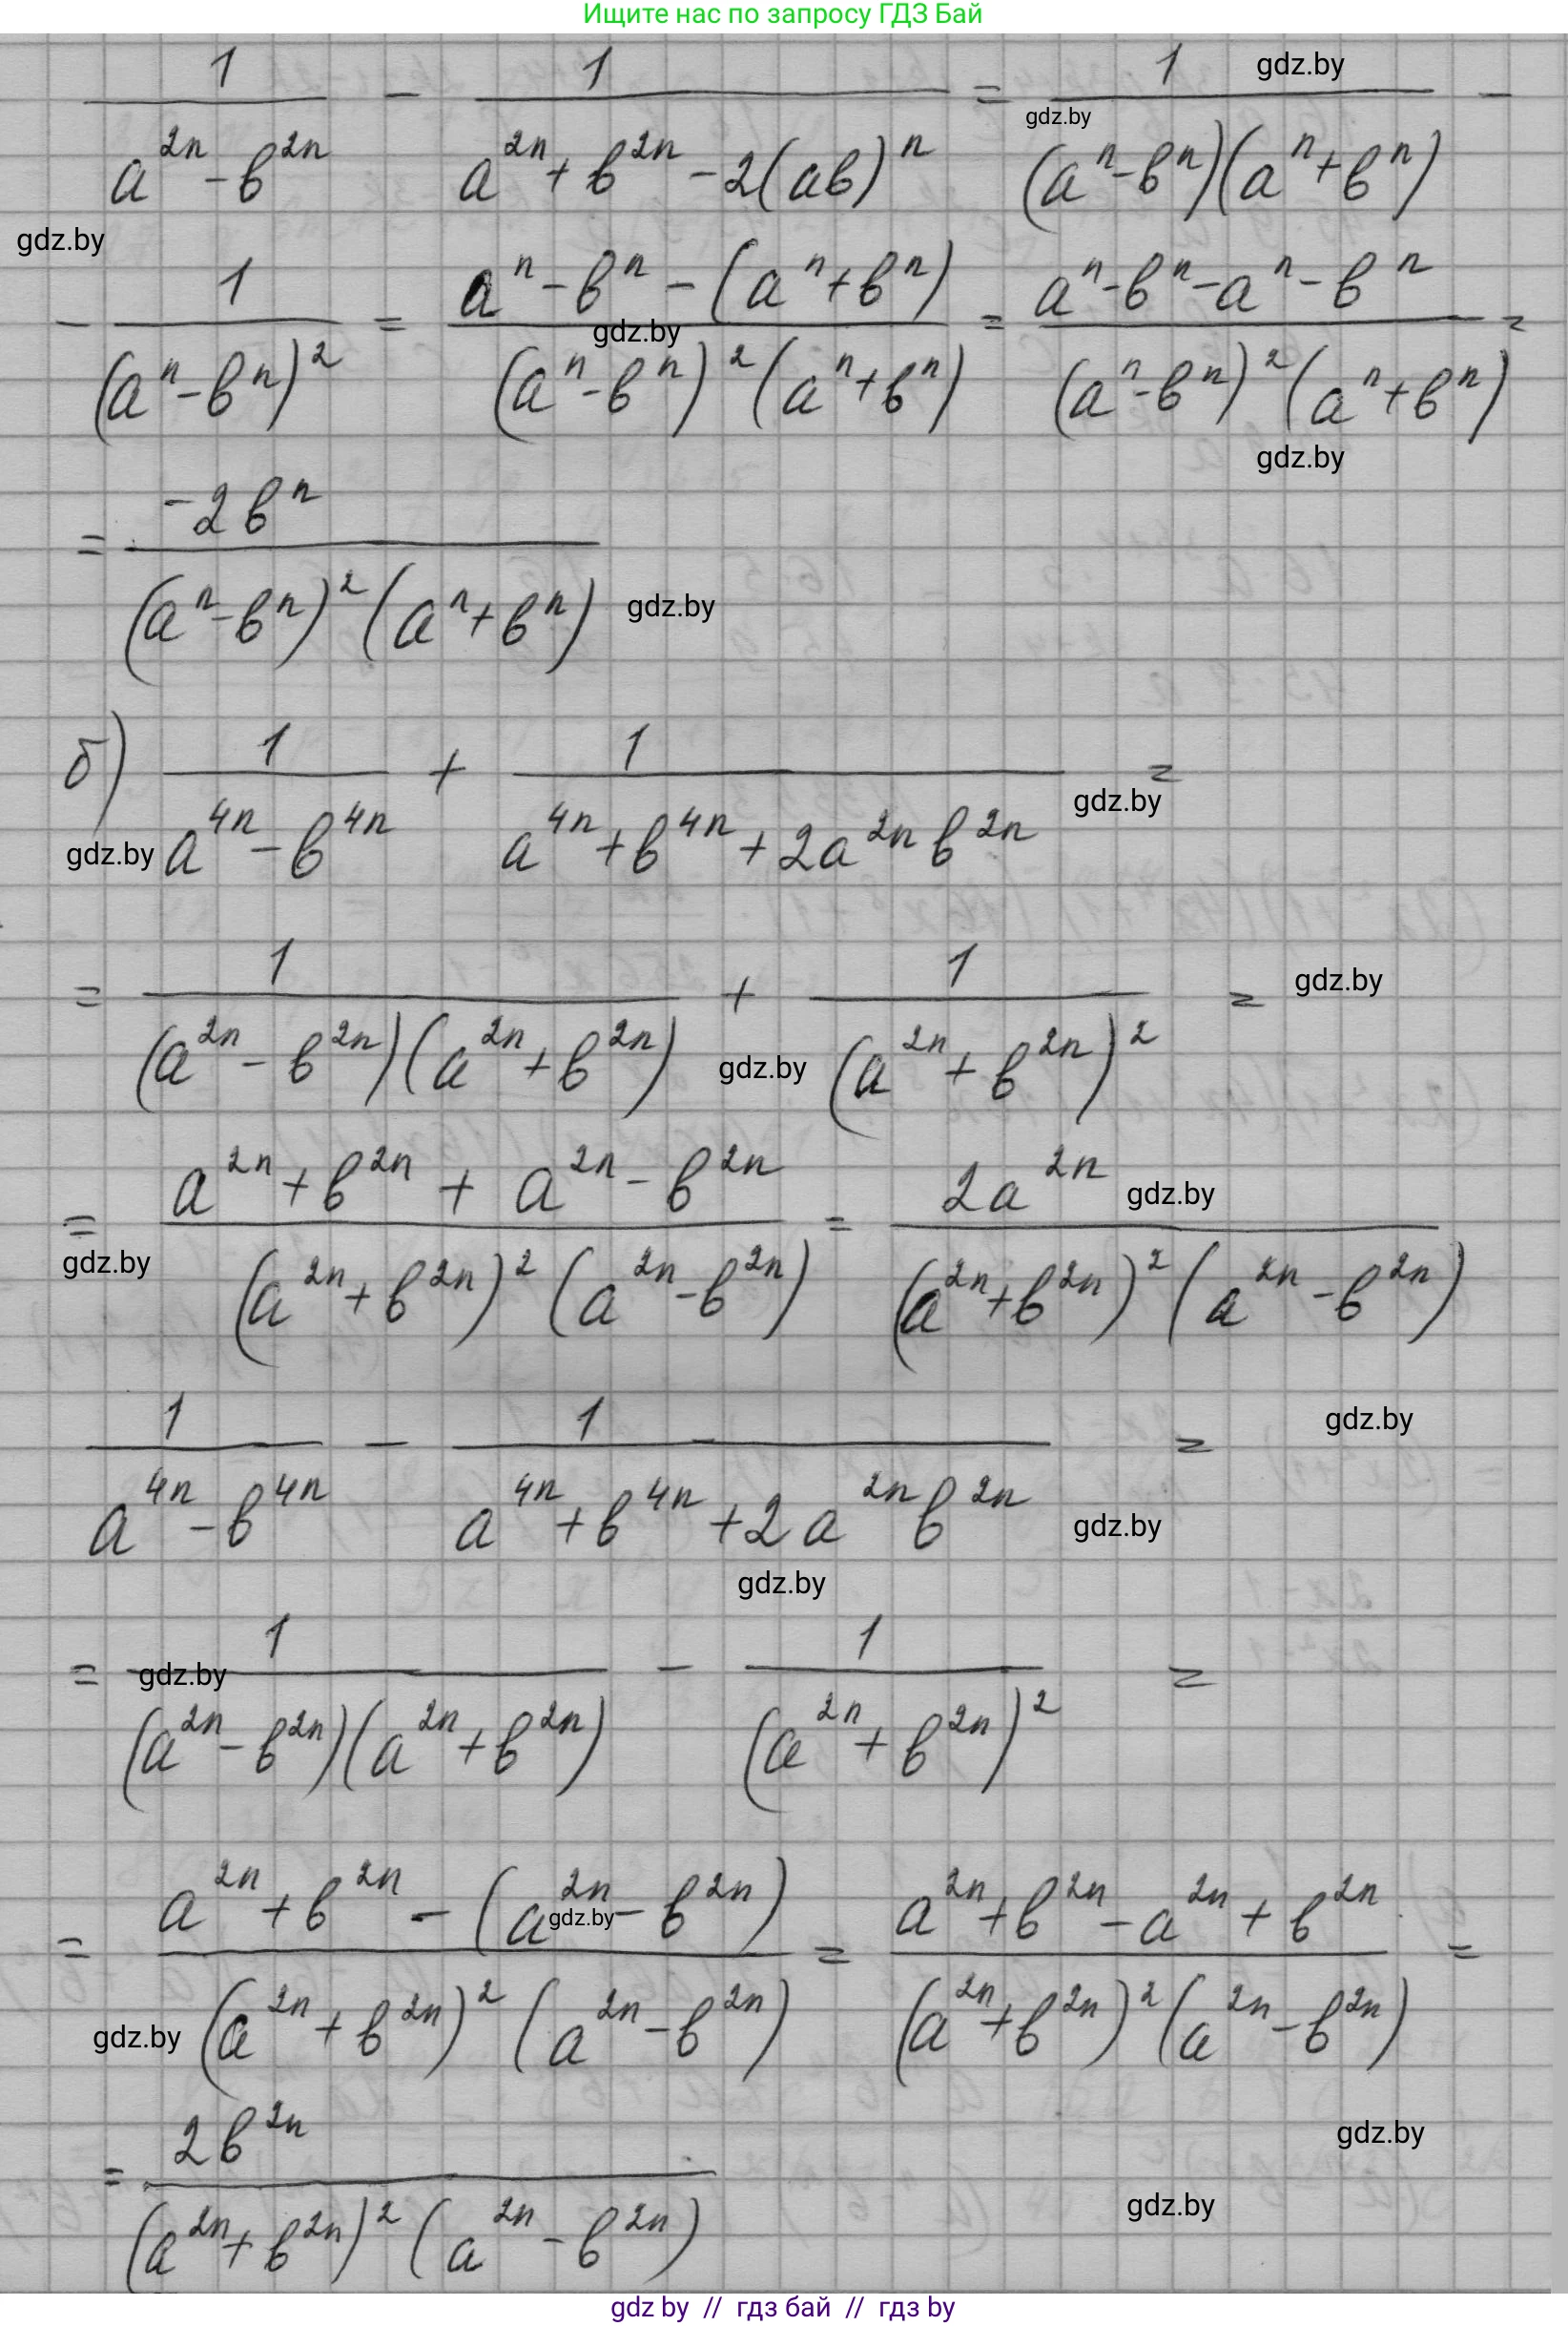 Ищите нас по запросу ГДЗ Бай
1/(a^{2n} - b^{2n}) - 1/(a^{2n} + b^{2n} - 2(ab)^n) = 1/((a^n - b^n)(a^n + b^n)) -
gdz.by
gdz.by
gdz.by
- 1/(a^n - b^n)^2 = (a^n - b^n - (a^n + b^n))/((a^n - b^n)^2 (a^n + b^n)) = (a^n - b^n - a^n - b^n)/((a^n - b^n)^2 (a^n + b^n)) =
gdz.by
gdz.by
= -2b^n/((a^n - b^n)^2 (a^n + b^n))
gdz.by
б) 1/(a^{4n} - b^{4n}) + 1/(a^{4n} + b^{4n} + 2a^{2n} b^{2n}) =
gdz.by
gdz.by
= 1/((a^{2n} - b^{2n})(a^{2n} + b^{2n})) + 1/(a^{2n} + b^{2n})^2 =
gdz.by
gdz.by
= (a^{2n} + b^{2n} + a^{2n} - b^{2n})/((a^{2n} + b^{2n})^2 (a^{2n} - b^{2n})) = 2a^{2n}/((a^{2n} + b^{2n})^2 (a^{2n} - b^{2n}))
gdz.by
gdz.by
1/(a^{4n} - b^{4n}) - 1/(a^{4n} + b^{4n} + 2a^{2n} b^{2n}) =
gdz.by
gdz.by
gdz.by
= 1/((a^{2n} - b^{2n})(a^{2n} + b^{2n})) - 1/(a^{2n} + b^{2n})^2 =
gdz.by
= (a^{2n} + b^{2n} - (a^{2n} - b^{2n}))/((a^{2n} + b^{2n})^2 (a^{2n} - b^{2n})) = (a^{2n} + b^{2n} - a^{2n} + b^{2n})/((a^{2n} + b^{2n})^2 (a^{2n} - b^{2n})) =
gdz.by
gdz.by
= 2b^{2n}/((a^{2n} + b^{2n})^2 (a^{2n} - b^{2n}))
gdz.by
gdz.by
gdz by // гдз бай // гдз by